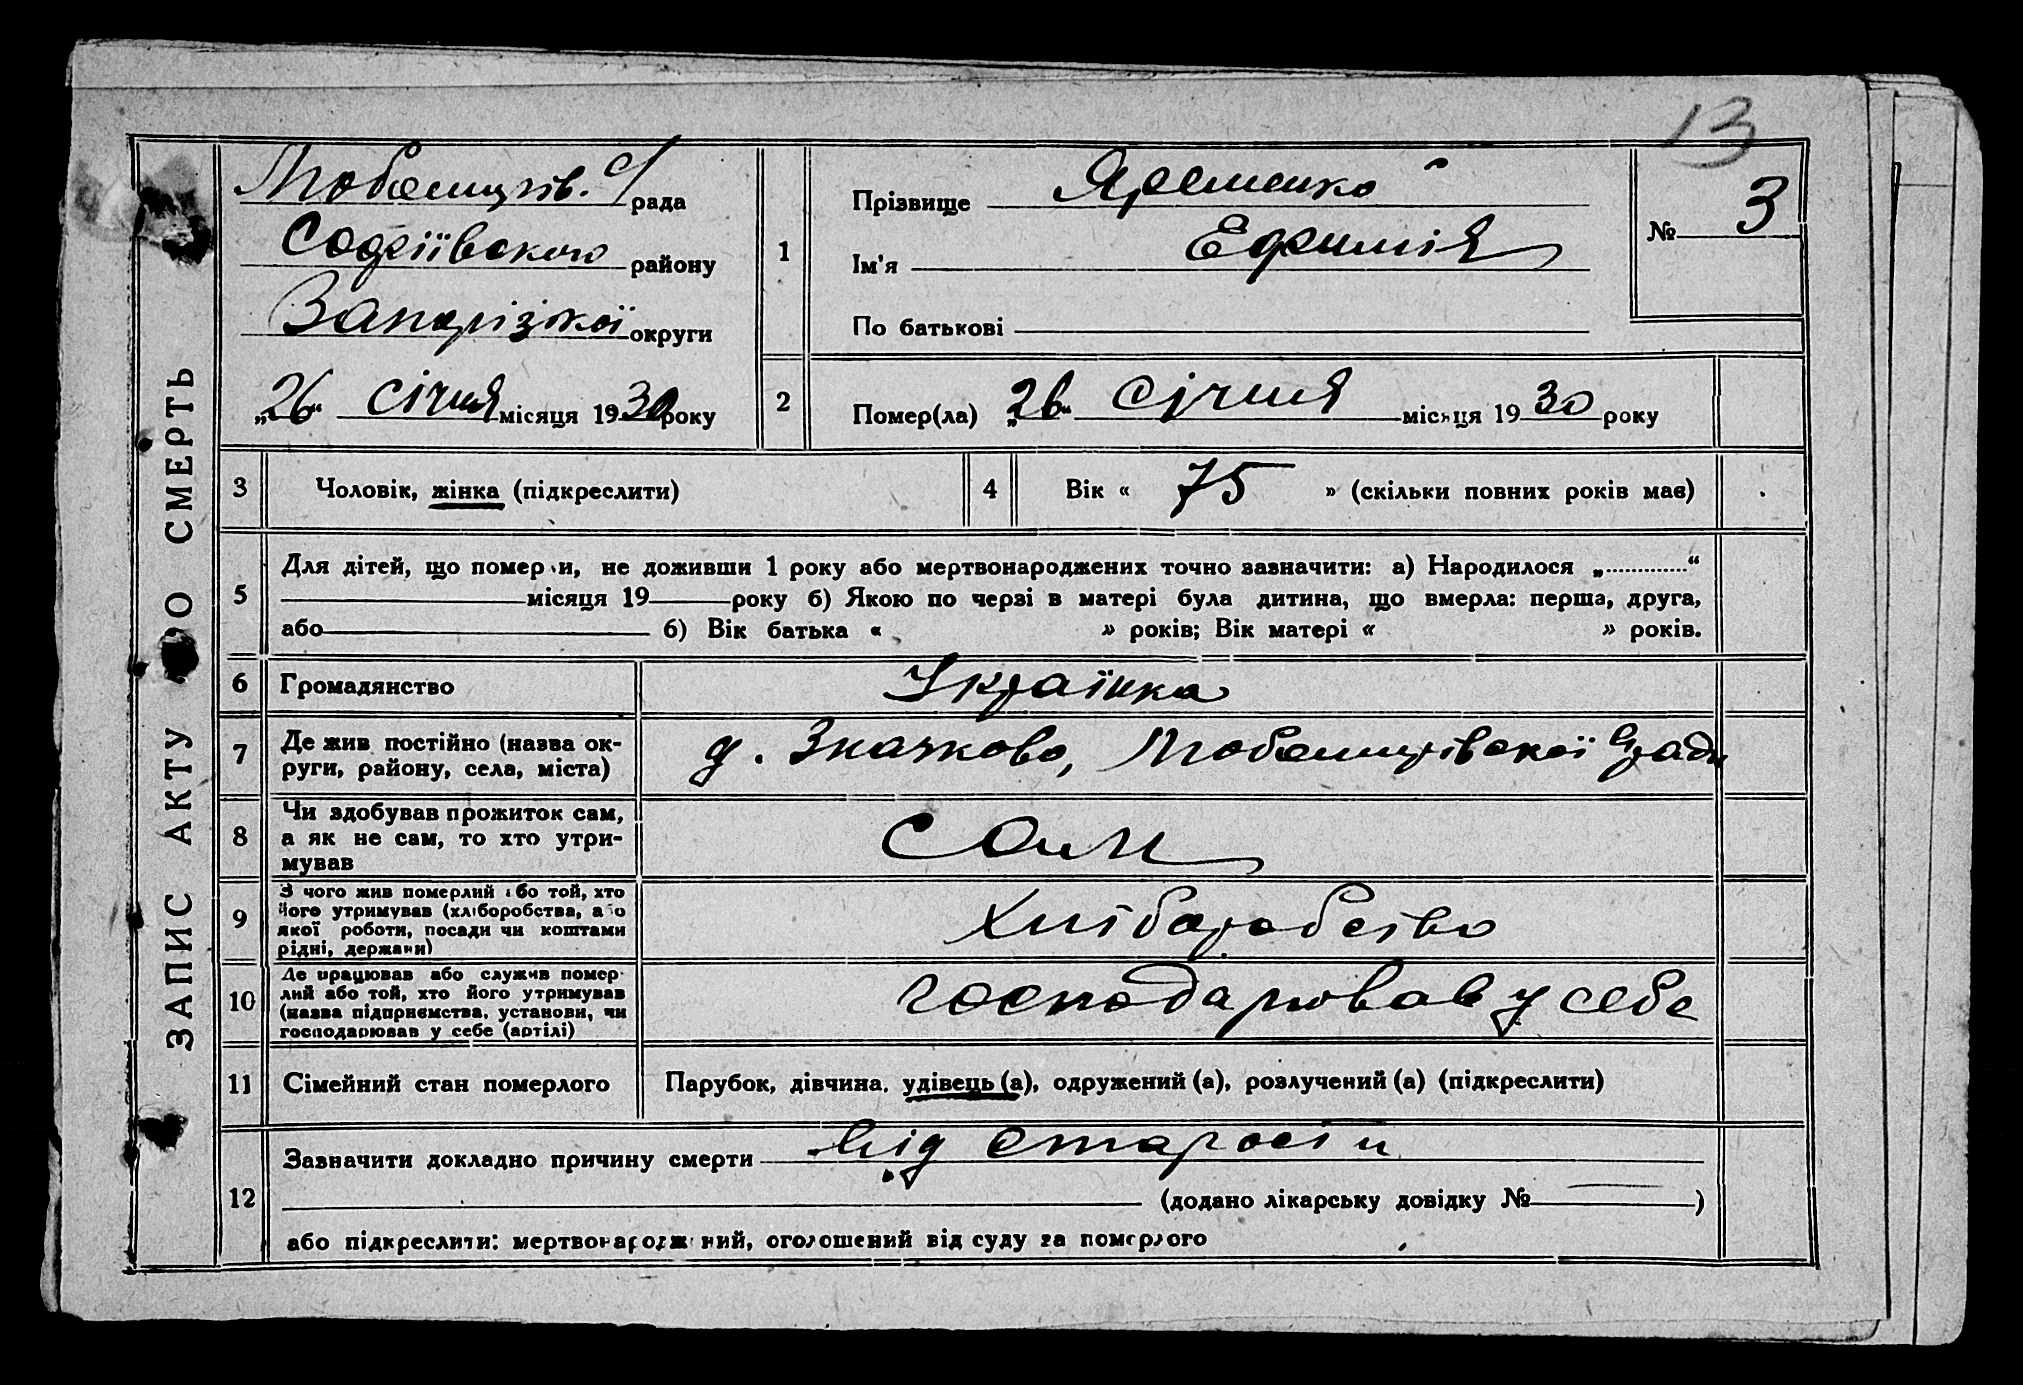 13
ЗАПИС АКТУ ПРО СМЕРТЬ
Любимуків. с/рада
Софіївського району
Запорізької округи
„26“ січня місяця 1930 року
1
Прізвище Яременко
Ім'я Ефимія
По батькові
№ 3
2
Помер(ла) „26“ січня місяця 1930 року
3 Чоловік, жінка (підкреслити)
4 Вік « 75 » (скільки повних років має)
5
Для дітей, що померли, не доживши 1 року або мертвонароджених точно зазначити: а) Народилося „............“
місяця 19 року б) Якою по черзі в матері була дитина, що вмерла: перша, друга,
або б) Вік батька « » років; Вік матері « » років.
6 Громадянство Українка
7
Де жив постійно (назва ок-
руги, району, села, міста)
д. Значково, ради
8
Чи здобував прожиток сам,
а як не сам, то хто утри-
мував
сам
9
З чого жив померлий або той, хто
його утримував (хліборобства, або
якої роботи, посади чи коштами
рідні, держави)
Хліборобство
10
Де працював або служив помер-
лий або той, хто його утримував
(назва підприємства, установи, чи
господарював у себе (артілі)
господарював у себе
11 Сімейний стан померлого Парубок, дівчина, удівець (а), одружений (а), розлучений (а) (підкреслити)
12
Зазначити докладно причину смерти від старости
(додано лікарську довідку № )
або підкреслити: мертвонароджений, оголошений від суду за померлого